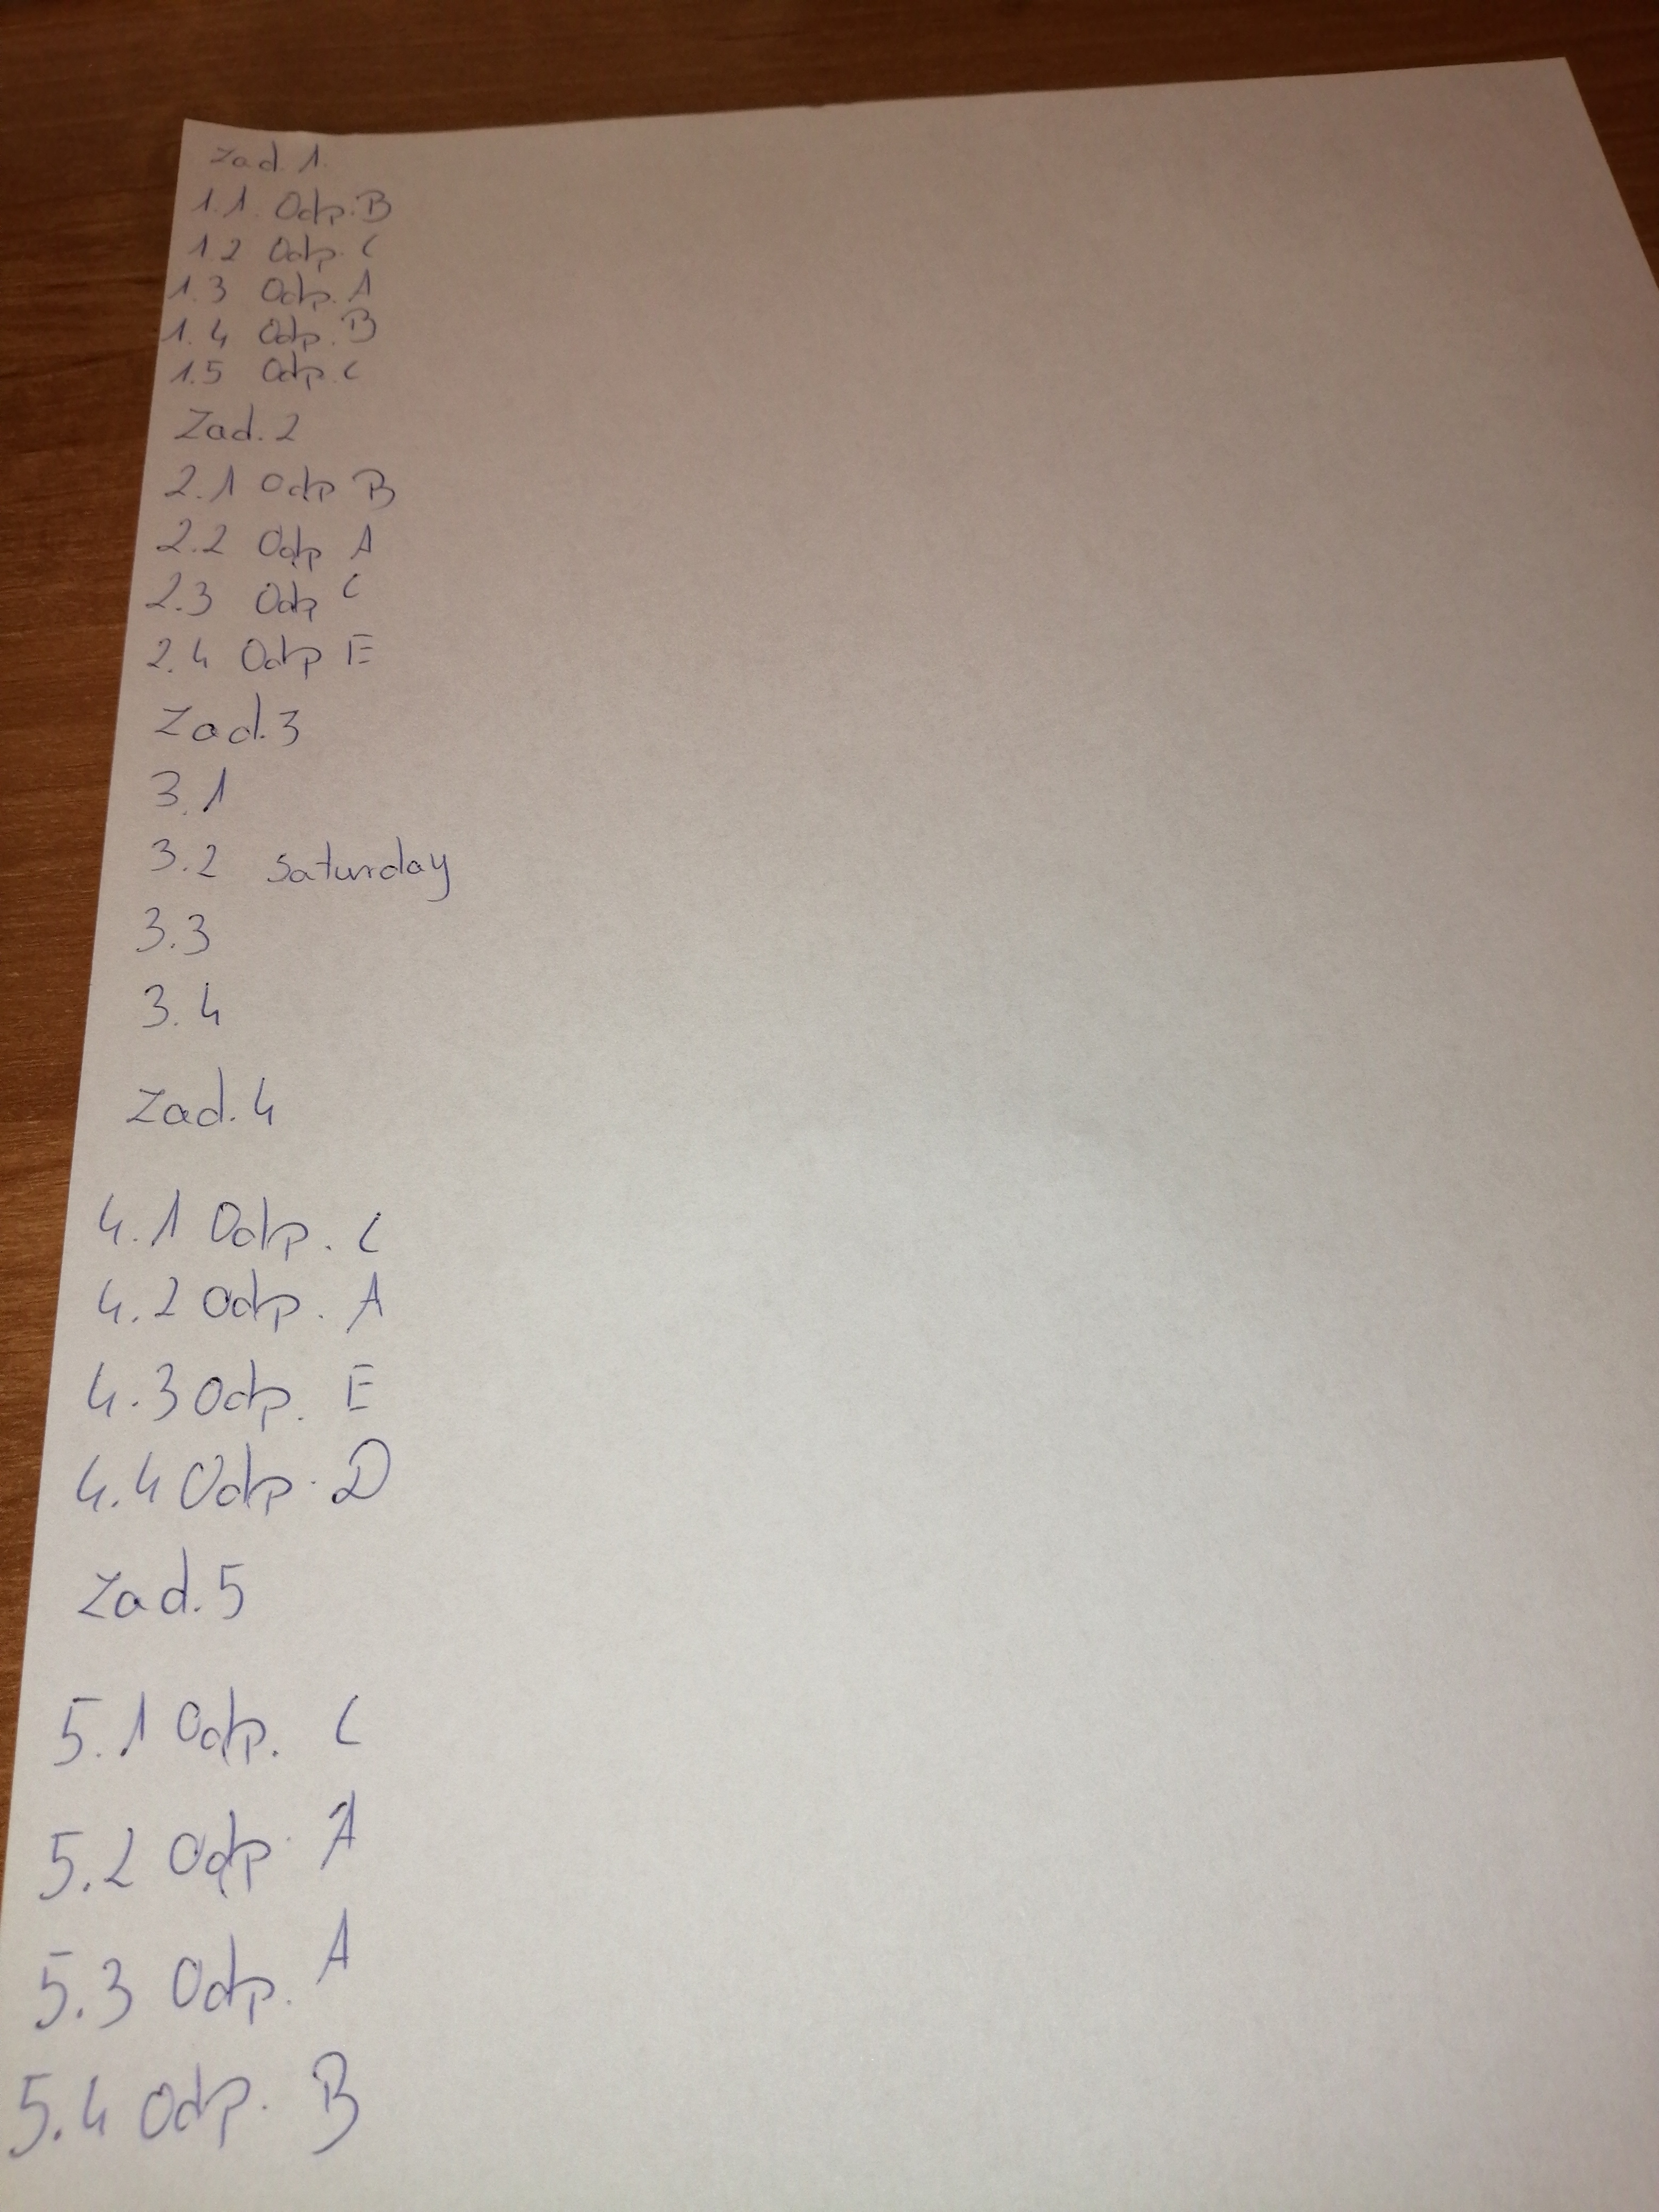 Zad 1.
1.1. Odp. B
1.2 Odp. C
1.3 Odp. A
1.4 Odp. B
1.5 Odp. C
Zad. 2
2.1 Odp B
2.2 Odp A
2.3 Odp C
2.4 Odp E
Zad. 3
3.1
3.2 Saturday
3.3
3.4
Zad. 4
4.1 Odp. C
4.2 Odp. A
4.3 Odp. E
4.4 Odp. D
Zad. 5
5.1 Odp. C
5.2 Odp. A
5.3 Odp. A
5.4 Odp. B